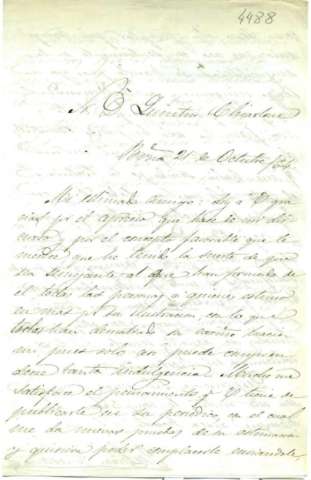 4488
S. D. Quintin Chiarlone
21 de Octubre
Mi estimado amigo: doy a V. gra
cias por el aprecio que hace de mi dis
curso, por el concepto favorable que le
merece que he tenido la suerte de que
sea semejante al que han formado de
el todas las personas a quienes estimo
en mas por su ilustracion, en lo que
todos han demostrado su cariño hacia
mi pues solo asi puede comprender
tanta indulgencia. Mucho me
satisface el pensamiento q. V. tiene de
publicarle en su periodico en el cual
me da nuevas pruebas de su estimacion
y quisiera poder complacerle enviandole